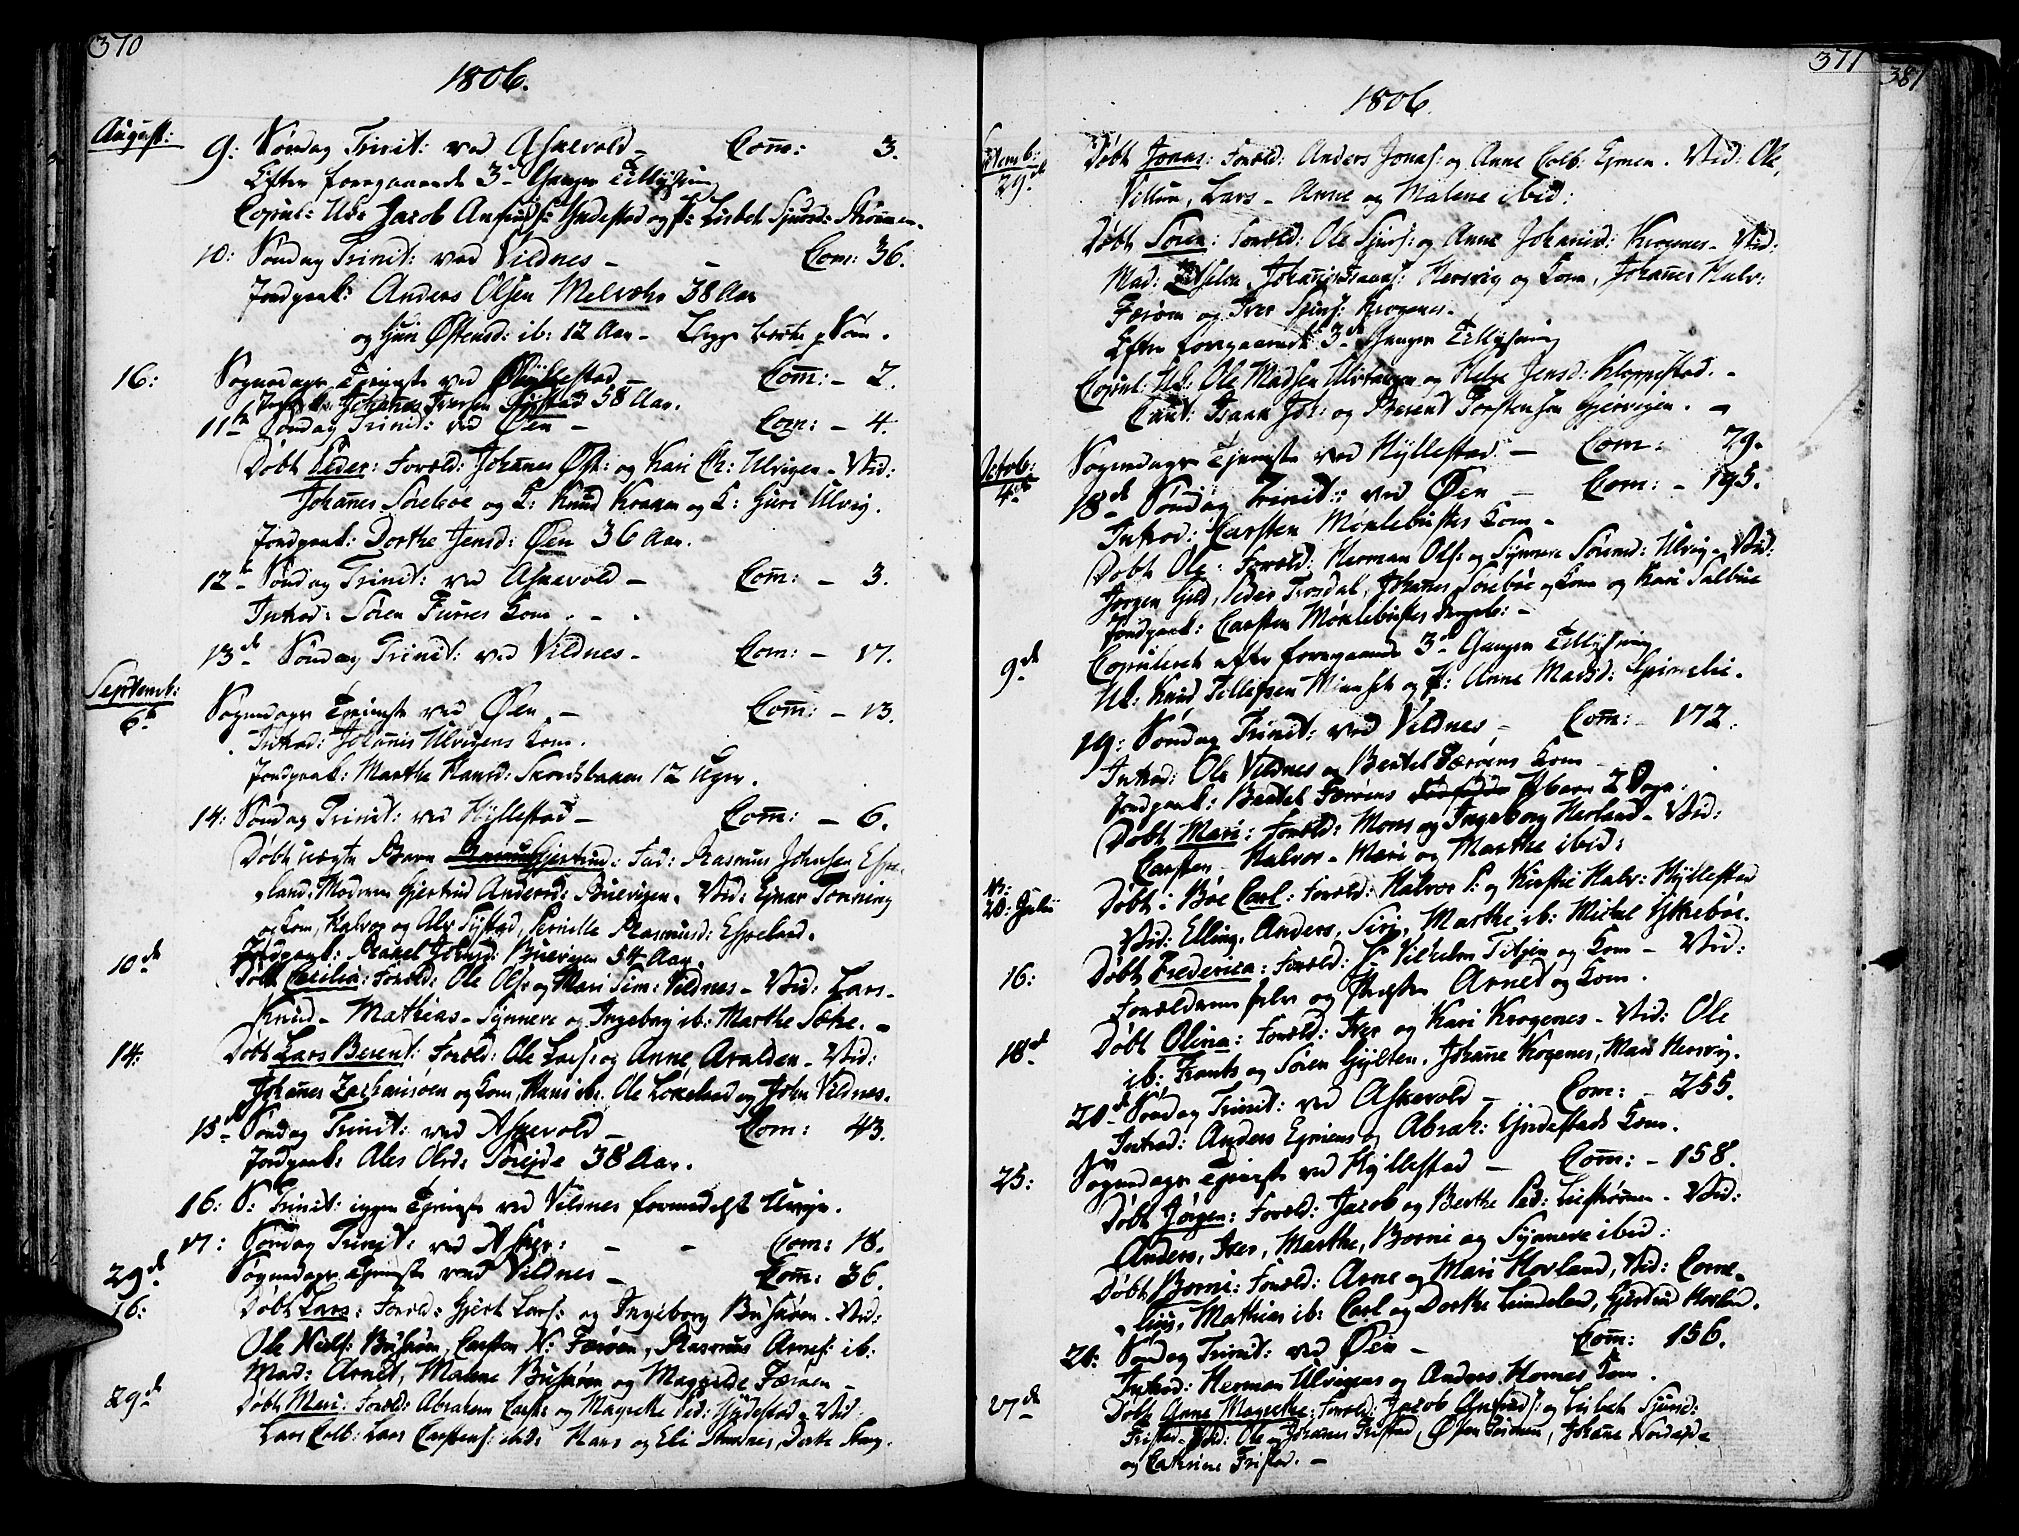 370
1806.
August:
9: Søndag Trinit: ved Askevold – Com: 3.
Efter foregaaende 3de Ganger Tillysning
Copul: Uk: Jacob Ansinds: Yndestad og P: Lisbet Sjurd: Strømmen.
10: Søndag Trinit: ved Vildnes – – Com: 36.
Jordpaak: Anders Olsen Melvær 38 Aar
og Guri Østensd: ib: 12 Aar –
16: Sognedags Tjeniste ved Hyllestad – Com: – 2.
Johanes Iversen 58 Aar.
11te Søndag Trinit: ved Øen – Com: – 4.
Døbt Peder: Foræld: Johanes Øst: og Kari Ch: Ulvigen – Vid:
Johanes Sørebøe og K: Knud og K: Guri Ulvig.
Jordpaak: Dorthe Jensd: Øen 36 Aar.
12te Søndag Trinit: ved Askevold – Com: – 3.
Introd: Søren Furres Kone. – .
13de Søndag Trinit: ved Vildnes – Com: – 17.
Septemb:
6te Sognedags Tjeniste ved Øen – Com: – 13.
Introd: Johanis Ulvigens Kone.
Jordpaak: Marthe Hansd: 12 Uger.
14: Søndag Trinit: ved Hyllestad – Com: – 6.
Døbt uægte Barn Gjertrud: Fad: Rasmus Johnsen Espe-
land, Moderen Gjertrud Andersd: Buevigen. Vid: Ejnar Tonning
og Kone, Halvor og Alv Systad, Pernille Rasmusd: Espeland.
10de Jordpaak: Buevigen 54 Aar.
Døbt Cecilia: Foræld: Ole Ols: og Mari Sim: Vildnes – Vid: Lars –
Knud – Mathias – Synneve og Ingeborg ib: Marthe –
14: Døbt Lars Berent: Foræld: Ole Lars: og Anne Aralden – Vid:
Johanes Zachariasøen og Kone, Hans ib: Ole Lokeland og John Vildnes.
15de Søndag Trinit: ved Askevold – Com: 43.
Jordpaak: Ales Olsd: 38 Aar.
16: S: Trinit: ingen Tjeniste ved Vildnes formedelst Uvejr.
17: Søndag Trinit: ved Askev: – – Com: 18.
29de Sognedags Tjeniste ved Vildnes – Com: 36.
16: Døbt Lars: Foræld: Gjert Lars: og Ingeborg Buskøen – Vid:
Ole Niels: Buskøen, Carsten N: Færøen, Rasmus Arnes: ib:
Mad: Arnet, Malene Buskøen og Magrethe Færøen –
29de Døbt Mari: Foræld: Abraham Carst: og Magrethe Ped: Yndestad – Vid:
Lars Colb: Lars Carstens: ibid: Hans og Eli Dorthe
371
387
1806
Septemb:
29de Døbt Jonas: Foræld: Anders Jonas: og Anne Colb: Ejmen. Vid: Ole,
Villum, Lars – Anne og Malene ibid:
Døbt Søren: Foræld: Ole Sjurs: og Anne Johanisd: Krogenes – Vid:
Mad: Johanes Hersvig og Kone, Johanes Halv:
Færøen og Iver Sjurs: Krogenes –
Efter foregaaende 3de Ganger Tillysning
Copul: Uk: Ole Madsen og Helge Jensd: Kloppestad. –
Caut: Isaak Joh: og Berend Torstensen Gjervigen. –
Octob:
4de Sognedags Tjeniste ved Hyllestad – Com: 29.
18de Søndag Trinit: ved Øen – Com: – 195.
Introd: Carsten Mørlebustes Kone –
Døbt Ole: Foræld: Herman Ols: og Synneve Sørensd: Ulvig – Vid:
Jørgen Guld, Peder Trosdal, Johanes Sørebøe og Kone og Kari Salbue
Jordpaak: Carsten Mørlebustes –
9de Copuleret efter foregaaende 3de Ganger Tillysning
Uk: Knud Tillefsen og P: Anne Madsd: Grimelie.
19: Søndag Trinit: ved Vildnes – Com: – 172.
Introd: Ole Vildnes og Bertel Færøens Kone –
Jordpaak: Bertel Færøens Barn 2 Dage.
Døbt Mari: Foræld: Mons og Ingeborg Herland – Vid:
Carsten – Halvor – Mari og Marthe ibid:
20: Julii Døbt i Bøe Carl: Foræld: Halvor P: og Kirstie Halv: Hyllestad
Vid: Elling, Anders, Siri, Marthe ib: Michel Yttrebøe.
16: Døbt Frederica: Foræld: Hr Vilhelm og Kone – Vid:
Forældrene selv og Arnet og Kone.
18de Døbt Olina: Foræld: Iver og Kari Krogenes – Vid: Ole
ib: Frants og Søren Gjylten, Johanne Krogenes, Mari Hersvig.
20de Søndag Trinit: ved Askevold – Com: – 255.
Introd: Anders Ejmens og Abrah: Yndestads Kone.
25: Sognedags Tjeniste ved Hyllestad – Com: – 158.
Døbt Jørgen: Foræld: Jacob og Berthe Ped: – Vid:
Anders, Iver, Marthe, Borni og Synneve ibid:
Døbt Borni: Foræld: Arne og Mari Hovland, Vid: Corne-
lius, Mathias ib: Carl og Dorthe Gjertrud Hovland.
21: Søndag Trinit: ved Øen – Com: 156.
Introd: Herman Ulvigens og Anders Hornes Kone.
27de Døbt Anne Magrethe: Foræld: Jacob og Lisbeth Sjursd:
Fristad – Vid: Ole og Johanes Fristad, Johanne
og Catrine Fristad. –